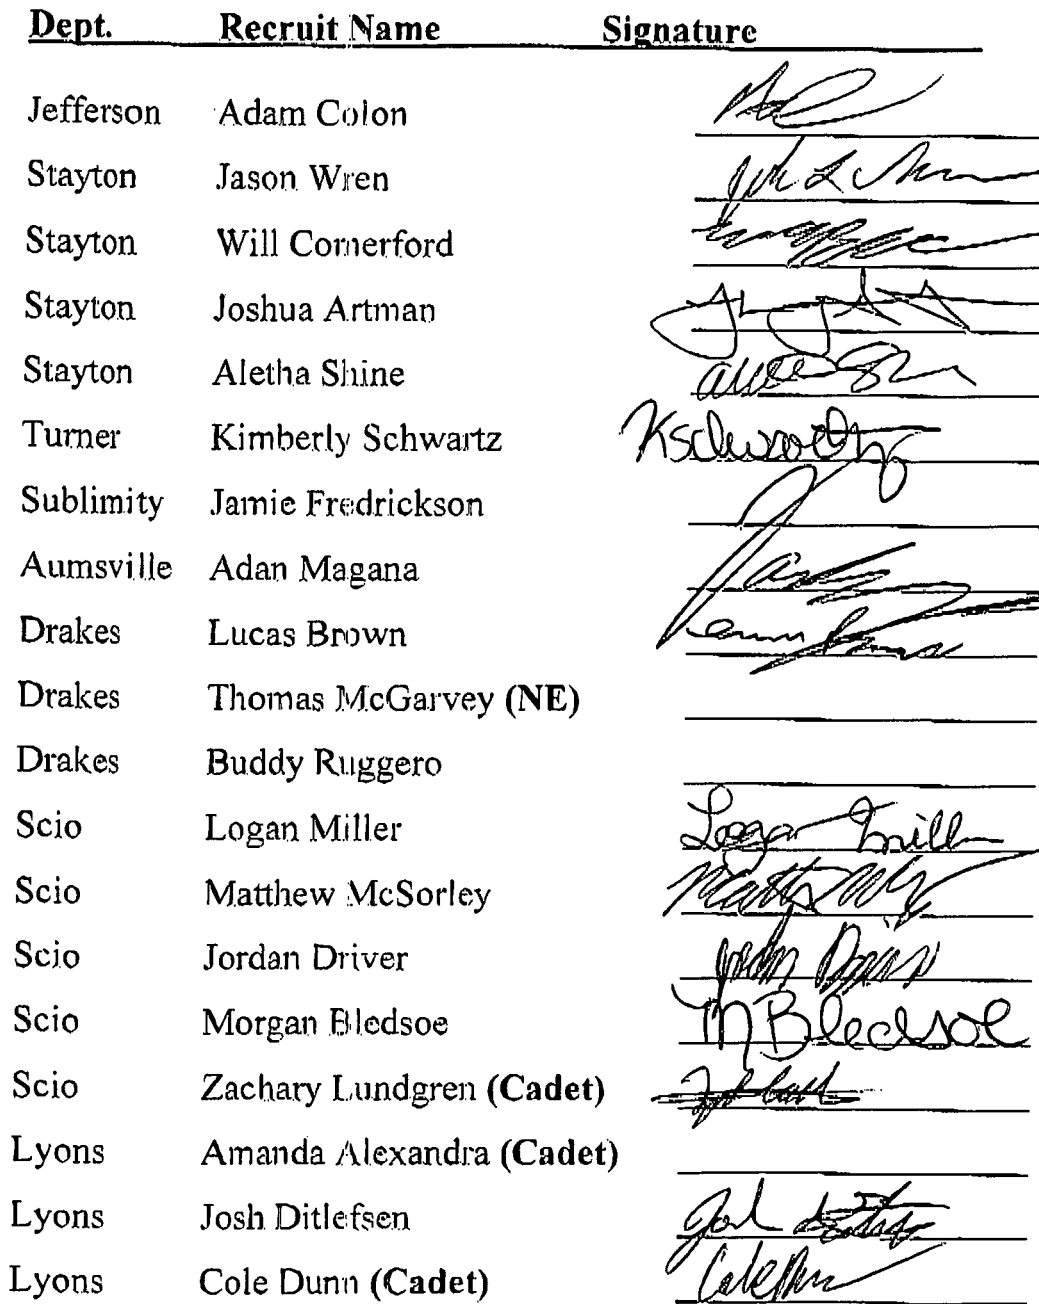 Dept. Recruit Name Signature
Jefferson Adam Colon
Stayton Jason Wren
Stayton Will Comerford
Stayton Joshua Artman
Stayton Aletha Shine
Turner Kimberly Schwartz KSchwartz
Sublimity Jamie Fredrickson
Aumsville Adan Magana
Drakes Lucas Brown
Drakes Thomas McGarvey (NE)
Drakes Buddy Ruggero
Scio Logan Miller Logan Miller
Scio Matthew McSorley
Scio Jordan Driver
Scio Morgan Bledsoe M Bledsoe
Scio Zachary Lundgren (Cadet)
Lyons Amanda Alexandra (Cadet)
Lyons Josh Ditlefsen
Lyons Cole Dunn (Cadet)